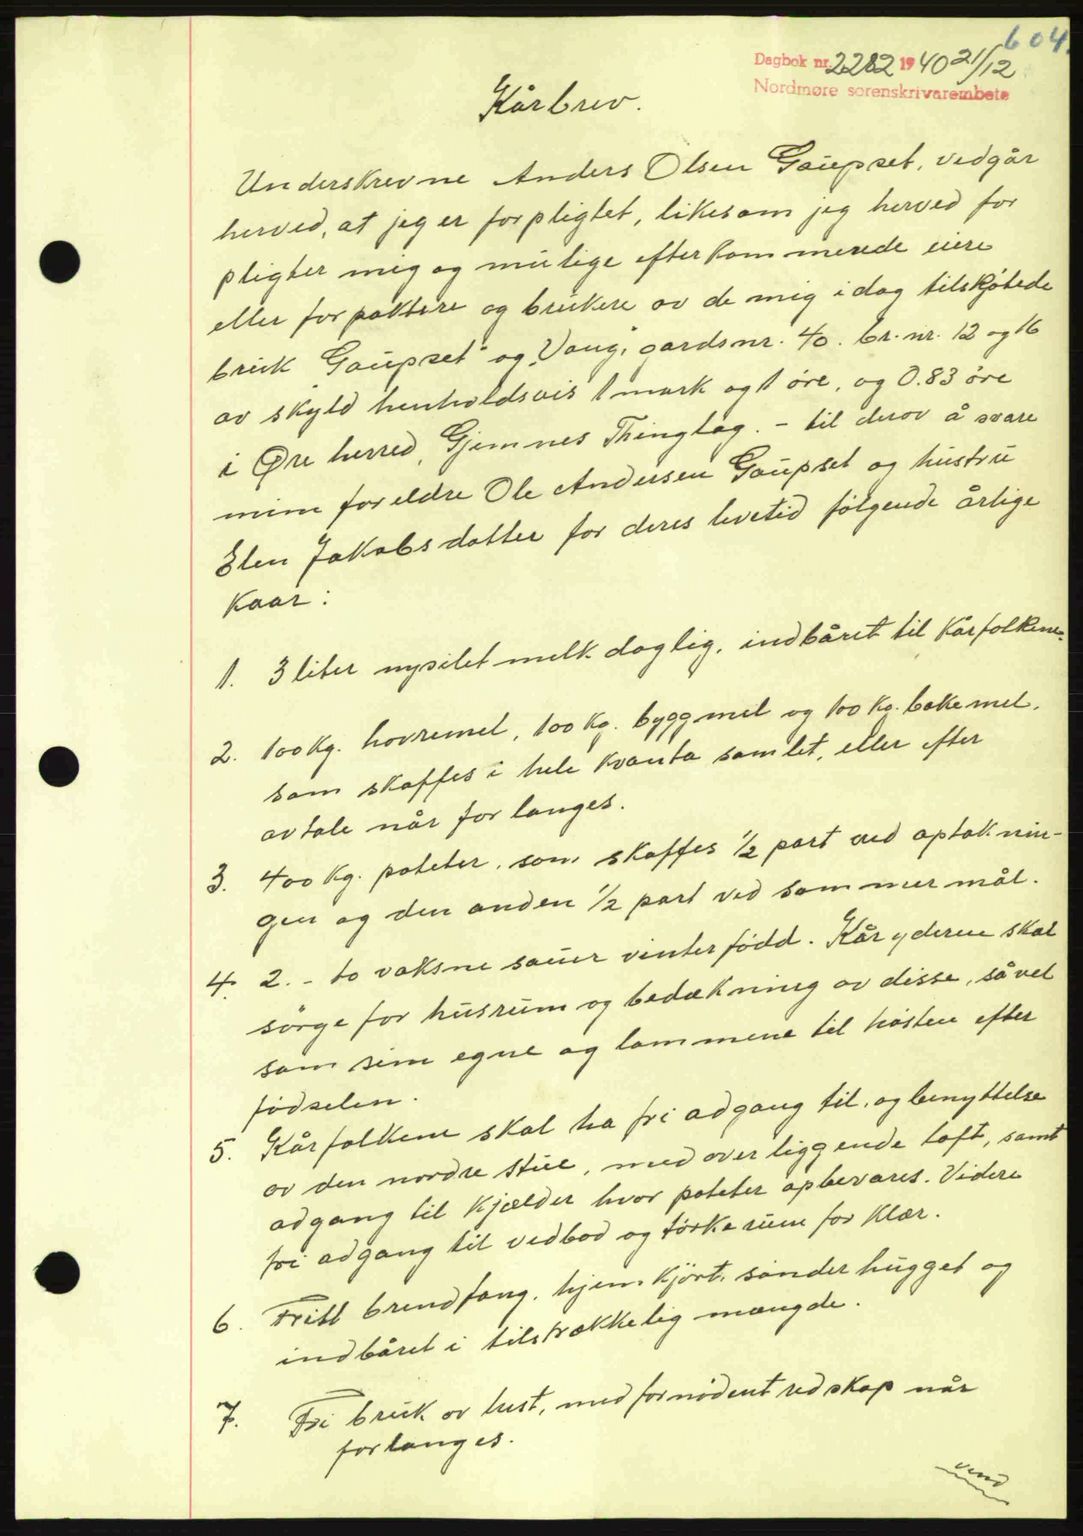 604.
Dagbok nr. 2282 1940 21/12
Nordmøre sorenskrivarembete
Kårbrev.
Underskrevne Anders Olsen Gaupset, vedgår
herved, at jeg er forpligtet, likesom jeg herved for
pligter mig og mulige efterkommerede eiere
eller forpaktere og brukere av de mig i dag tilskjøtede
bruk "Gaupset" og "Vang", gardsnr. 40. br. nr. 12 og 16
av skyld henholdsvis 1 mark og 1 öre, og 0.83 öre
i Øre herred, Gjemnes Thinglag. - til derav å svare
mine foreldre Ole Andersen Gaupset og hustru
Elen Jakobsdatter for deres levetid følgende årlige
Kaar:
1. 3 liter nysilet melk daglig, indbåret til Kårfolkene.
2. 100 Kg. havremel, 100 Kg. byggmel og 100 Kg. bakemel,
som skaffes i hele kvanta samlet, eller efter
avtale når forlanges.
3. 400 Kg. poteter, som skaffes 1/2 part ved optaknin-
gen og den anden 1/2 part ved sommermål.
4. 2. - to vaksne sauer vinterfödd. Kåryderen skal
sörge for husrum og bedækning av disse, såvel
som sine egne og lammene til hösten efter
födselen.
5. Kårfolkene skal ha fri adgang til, og benyttelse
av den nordre stue, med overliggende loft, samt
adgang til Kjælder hvor poteter opbevares. Videre
fri adgang til vedbod og törkerum for Klær.
6. Fritt brendfang, hjemkjört, sönderhugget og
indbåret i tilstrækkelig mængde.
7. Fri bruk av hest, med fornödent redskap når
forlanges.
vend